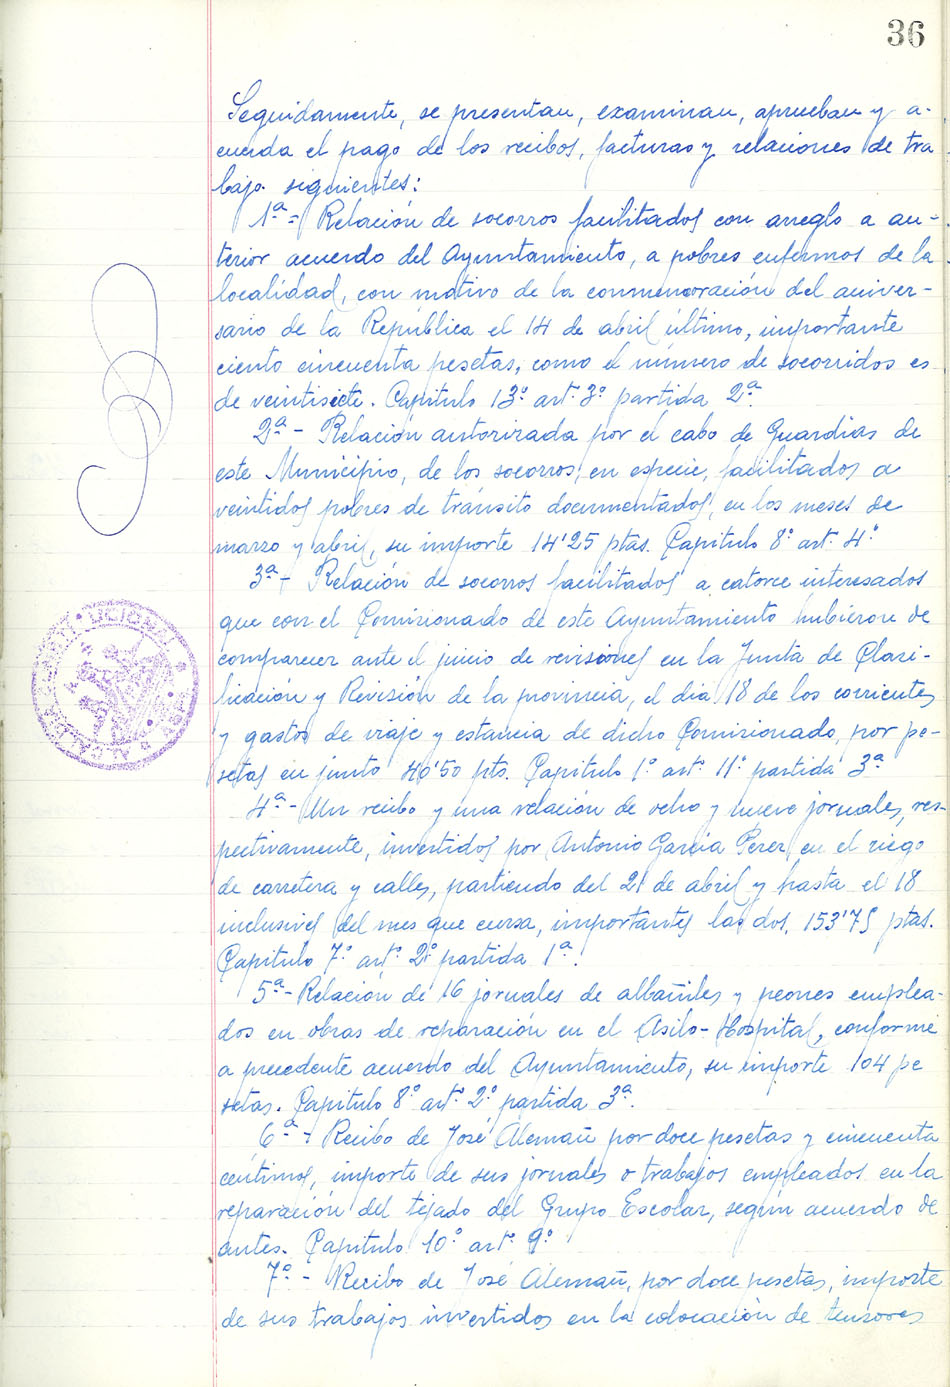 36
Seguidamente, se presentan, examinan, aprueban y a-
cuerda el pago de los recibos, facturas y relaciones de tra
bajo siguientes:
1ª = Relación de socorros facilitados con arreglo a an-
terior acuerdo del Ayuntamiento, a pobres enfermos de la
localidad, con motivo de la conmemoración del aniver-
sario de la República el 14 de abril último, importante
ciento cincuenta pesetas, como el número de socorridos es
de veintisiete. Capitulo 13º art. 3º partida 2ª.
2ª - Relación autorizada por el cabo de Guardias de
este Municipio, de los socorros, en especie, facilitados a
veintidos pobres de tránsito documentados, en los meses de
marzo y abril, su importe 14'25 ptas. Capitulo 8º art. 4º
3ª - Relación de socorros facilitados a catorce interesados
que con el Comisionado de este Ayuntamiento hubieron de
comparecer ante el juicio de revisiones en la Junta de Clasi-
ficación y Revisión de la provincia, el dia 18 de los corrientes
y gastos de viaje y estancia de dicho Comisionado, por pe-
setas en junto 40'50 pts. Capitulo 1º artº 11º partida 3ª
4ª - Un recibo y una relación de ocho y nueve jornales, res-
pectivamente, invertidos por Antonio Garcia Perez, en el riego
de carretera y calles, partiendo del 21 de abril y hasta el 18
inclusives del mes que cursa, importantes las dos, 153'75 ptas.
Capitulo 7º artº 2º partida 1ª.
5ª - Relación de 16 jornales de albañiles y peones emplea-
dos en obras de reparación en el Asilo-Hospital, conforme
a precedente acuerdo del Ayuntamiento, su importe 104 pe
setas. Capitulo 8º artº 2º partida 3ª.
6ª - Recibo de José Alemañ por doce pesetas y cincuenta
céntimos, importe de sus jornales o trabajos empleados en la
reparación del tejado del Grupo Escolar, según acuerdo de
antes. Capitulo 10º artº 9º
7º - Recibo de José Alemañ, por doce pesetas, importe
de sus trabajos invertidos en la colocación de tensores